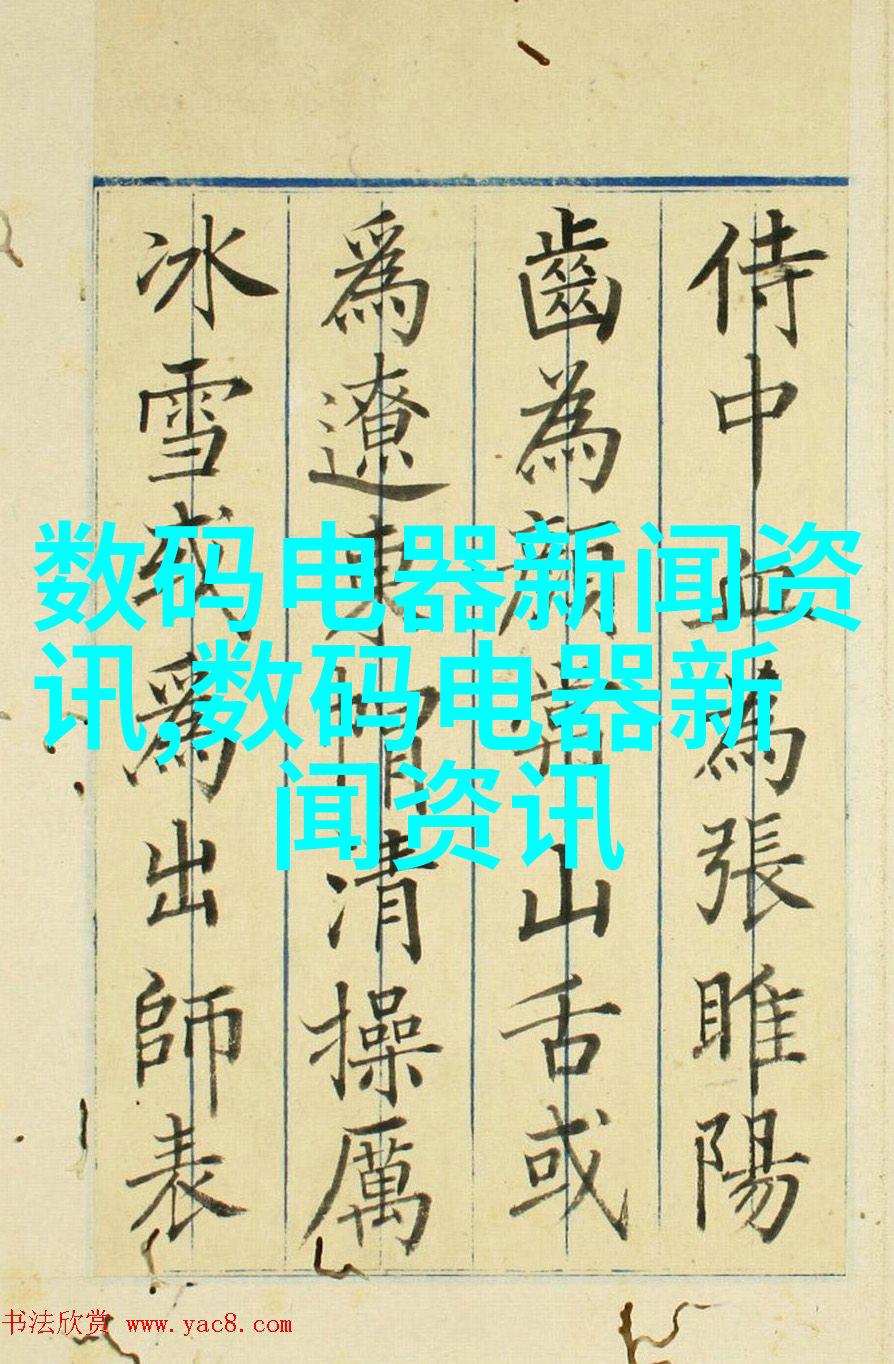 侍中血為張睢陽
齒為顔常山舌或
爲遼東帽清操厲
冰雪或爲出師表
数码电器新闻资
讯,数码电器新
闻资讯
书法欣赏 www.yac8.com